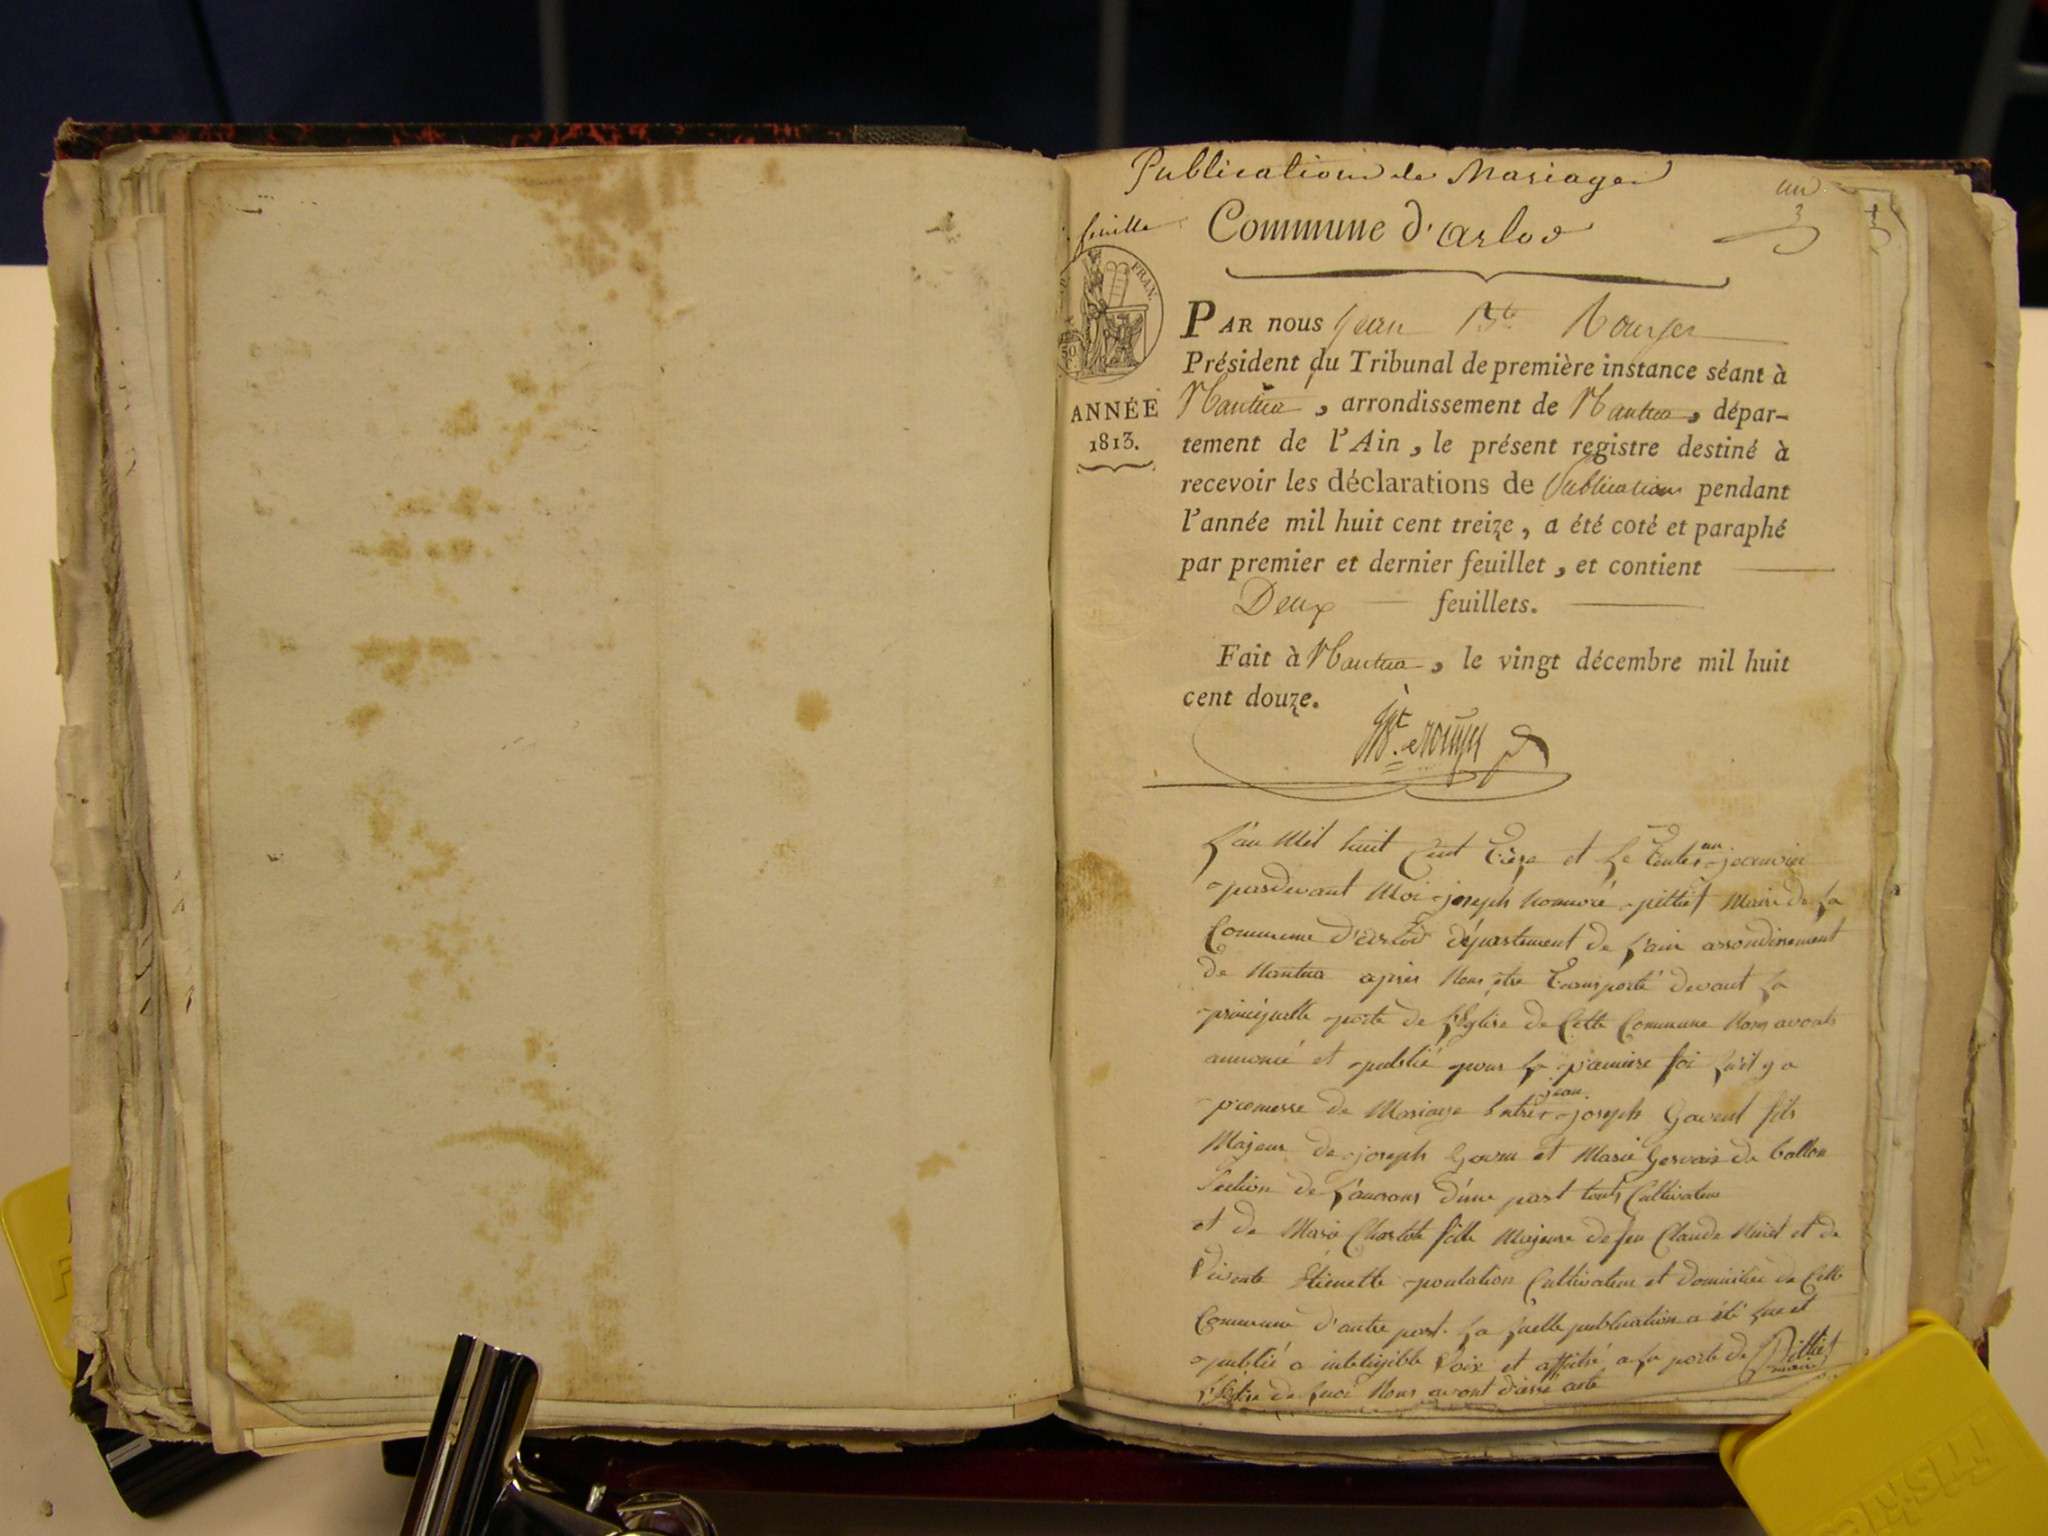 Publications de Mariages
un
feuille
Commune d'arlod
FRAN.
ANNÉE
1813.
PAR nous Jean Bte Rouyer
Président du Tribunal de première instance séant à
Nantua, arrondissement de Nantua, dépar-
tement de l'Ain, le présent registre destiné à
recevoir les déclarations de Publications pendant
l'année mil huit cent treize, a été coté et paraphé
par premier et dernier feuillet, et contient
Deux feuillets.
Fait à Nantua, le vingt décembre mil huit
cent douze.
L'an Mil huit Cent Treze et le Trente un janvier
pardevant Moi joseph honnoré pittiet Maire de la
Commune d'arlod département de L'ain arrondissement
de Nantua apres Nous etre Transporté devant la
principalle porte de L'Eglise de Cette Commune Nous avons
annoncé et publié pour la pramiere foi qu'il y a
promesse de Mariage Entre jean joseph Gavend fils
Majeur de joseph Gaven et Marie Gervais de ballon
Section de Lancrans d'une part touts Cultivateur
et de Marie Charlote fille Majeure de feu Claude Miret et de
Vivente Etienette Cultivateur et domiciliée de Cette
Commune d'autre part. La quelle publication a été lue et
publié a inteligible Voix et affiché a la porte de
L'Eglise de quoi Nous avont dressé acte
Pittiet
maire